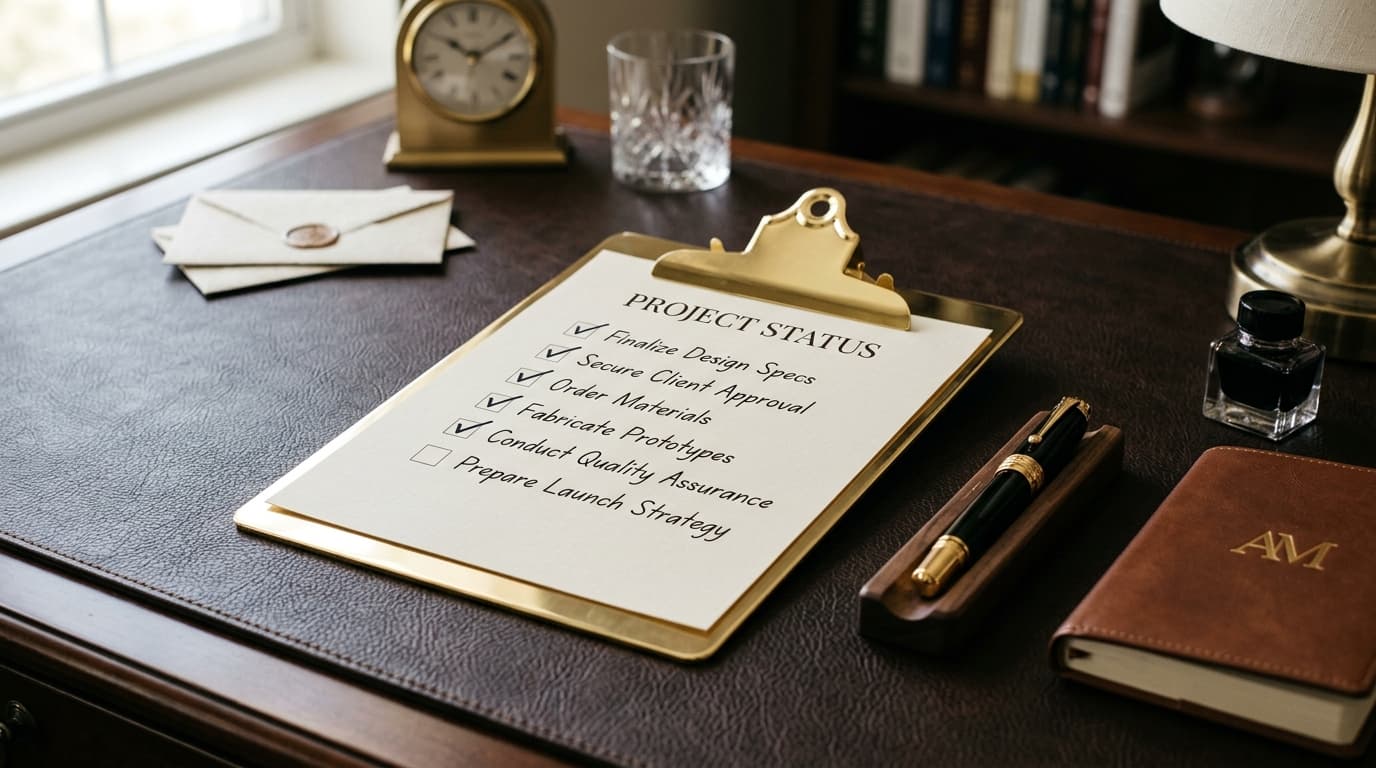 PROJECT STATUS
Finalize Design Specs
Secure Client Approval
Order Materials
Fabricate Prototypes
Conduct Quality Assurance
Prepare Launch Strategy
AM